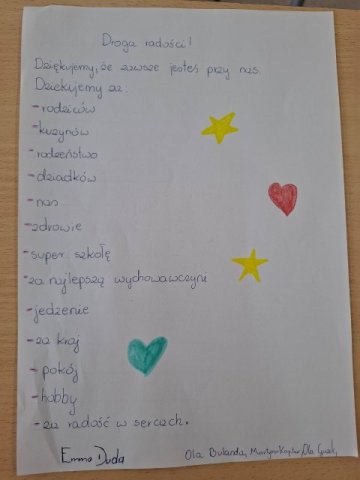 Droga radości!
Dziękujemy, że zawsze jesteś przy nas.
Dziękujemy za:
- rodziców
- kuzynów
- rodzeństwo
- dziadków
- nas
- zdrowie
- super szkołę
- za najlepszą wychowawczynię
- jedzenie
- za kraj
- pokój
- hobby
- za radość w sercach.
Emma Duda
Ola Bulanda, Martyna Ola